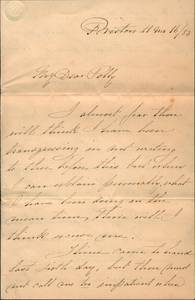 My Dear Polly
I almost fear thou
will think I have been
transgressing in not writing
to thee before this but when
I can explain personally what
I have been doing in the
mean time, thou will I
think excuse me.
Thine came to hand
last sixth day, but thou must
not call me so